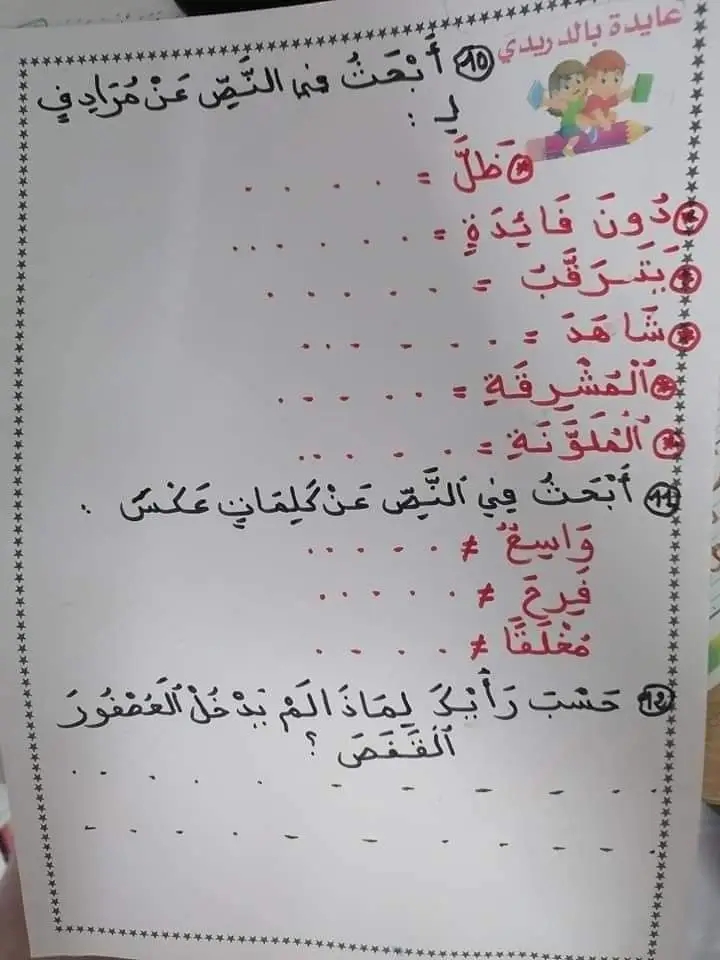 عايدة بالدريدي
10 أَبْحَثُ في النَّصِّ عَنْ مُرَادِفٍ
لِ :
* ظَلَّ = . . . . .
* دُونَ فَائِدَةٍ = . . . . . . .
* يَتَرَقَّبُ = . . . . . .
* شَاهَدَ = . . . . . . .
* اَلْمُشْرِقَةِ = . . . . . .
* اَلْمُلَوَّنَةِ = . . . . . .
11 أَبْحَثُ فِي النَّصِّ عَنْ كَلِمَاتٍ عَكْسَ :
وَاسِعٌ ≠ . . . . . .
فَرِحَ ≠ . . . . . .
مُغْلَقًا ≠ . . . . .
12 حَسْبَ رَأْيِكَ لِمَاذَا لَمْ يَدْخُلْ اَلْعُصْفُورَ
اَلْقَفَصَ ؟
. . . . . . . . .
. . . . . . . . . . .